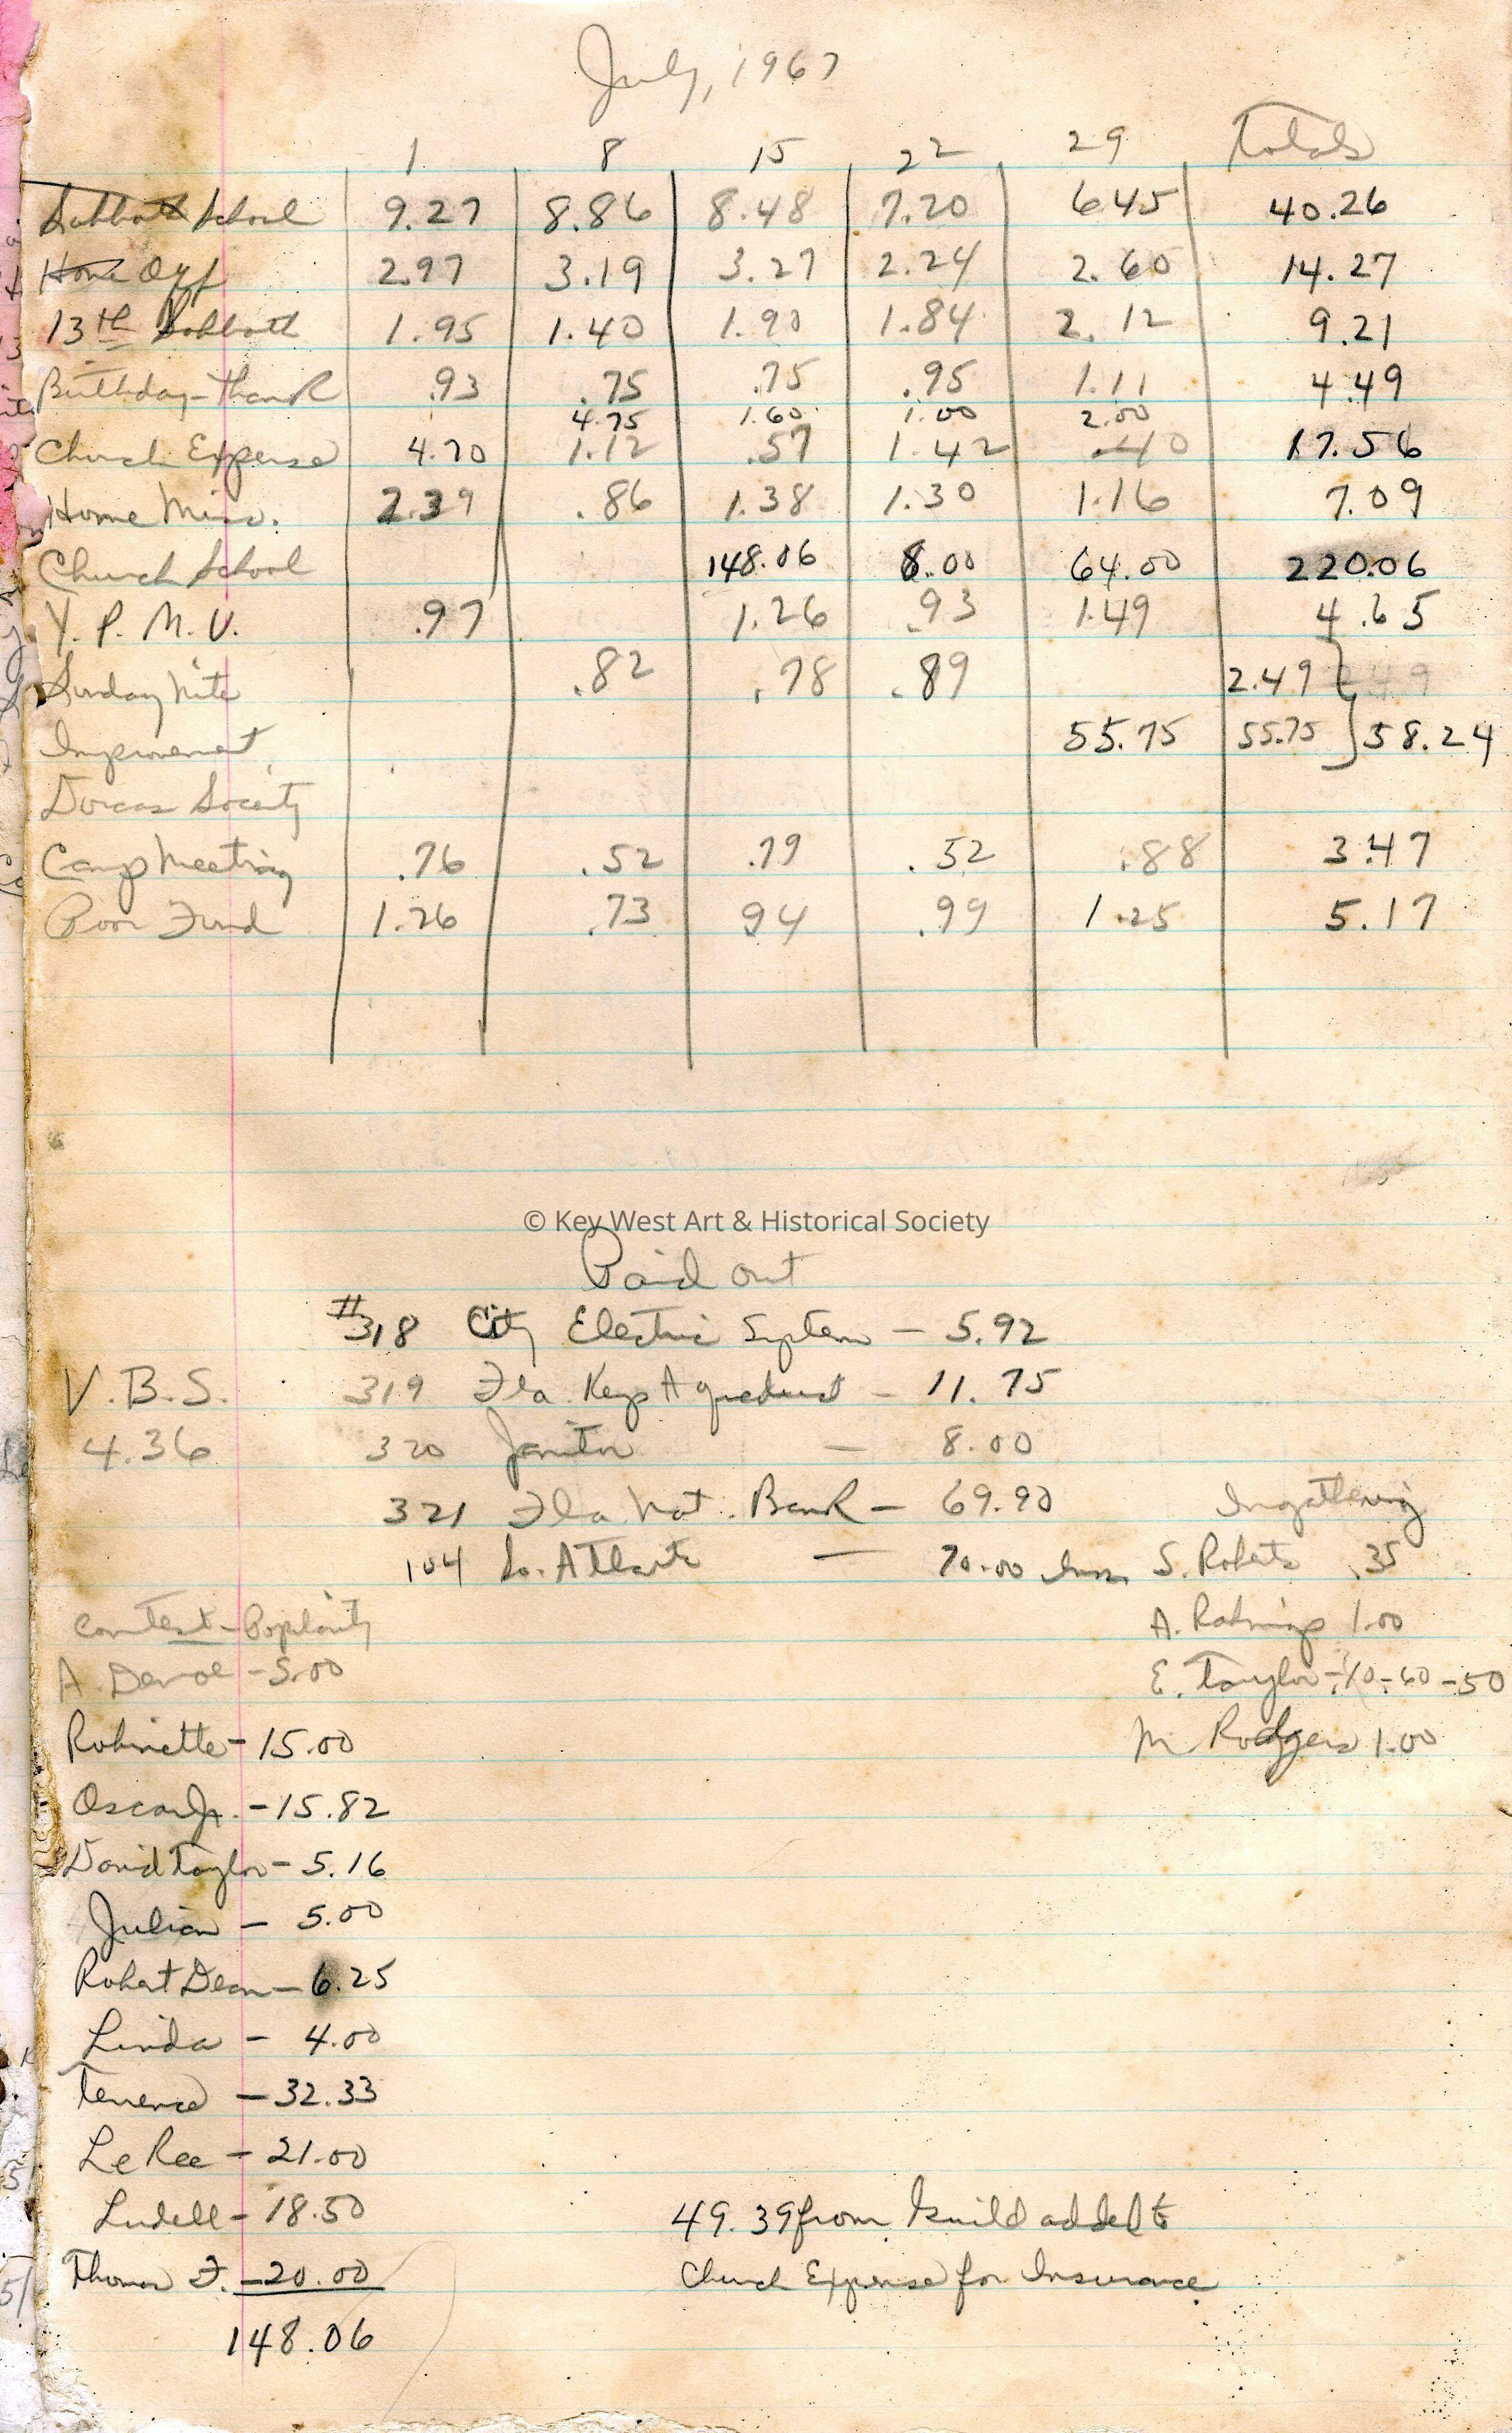 July, 1967
1 8 15 22 29 Totals
Sabbath School 9.27 8.86 8.48 7.20 6.45 40.26
Home Off 2.97 3.19 3.27 2.24 2.60 14.27
13th Sabbath 1.95 1.40 1.90 1.84 2.12 9.21
Birthday-Thank .93 .75 .75 .95 1.11 4.49
4.75 1.60 1.00 2.00
Church Expense 4.70 1.12 .57 1.42 .40 17.56
Home Miss. 2.39 .86 1.38 1.30 1.16 7.09
Church School 148.06 8.00 64.00 220.06
Y. P. M. V. .97 1.26 .93 1.49 4.65
Sunday Nite .82 .78 .89 2.49
Improvement 55.75 55.75 58.24
Dorcas Society
Camp Meeting .76 .52 .79 .52 .88 3.47
Poor Fund 1.26 .73 94 .99 1.25 5.17
© Key West Art & Historical Society
Paid out
#318 City Electric System - 5.92
V.B.S. 319 Fla. Keys Aqueduct - 11.75
4.36 320 Janitor - 8.00
321 Fla. Nat. Bank - 69.90 Ingathering
104 So. Atlantic - 70.00 Insu. S. Roberts .35
Contest-Poplarity A. Rahmings 1.00
A. Devoe - 5.00 E. Taylor - .10-.60-.50
Robinette - 15.00 M Rodgers 1.00
Oscar Jr. - 15.82
David Taylor - 5.16
Julian - 5.00
Robert Dean - 6.25
Linda - 4.00
Terrence - 32.33
LeRee - 21.00
Ludell - 18.50 49.39 from Guild added to
Thomas F. - 20.00 Church Expense for Insurance
148.06